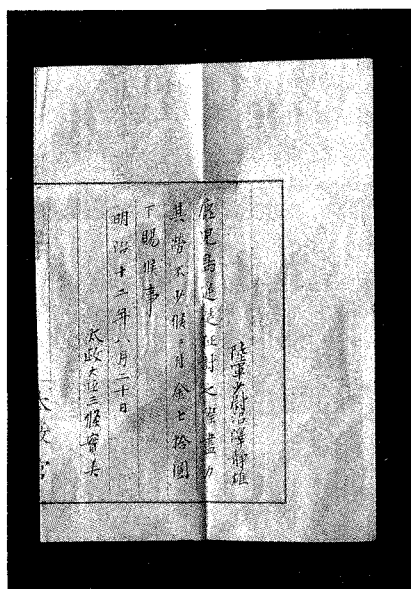 陸軍少尉沼澤静雄
鹿児島逆徒征討之際盡力
其勞不少候ニ付金七拾圓
下賜候事
明治十二年八月二十日
太政大臣三條實美
太政官